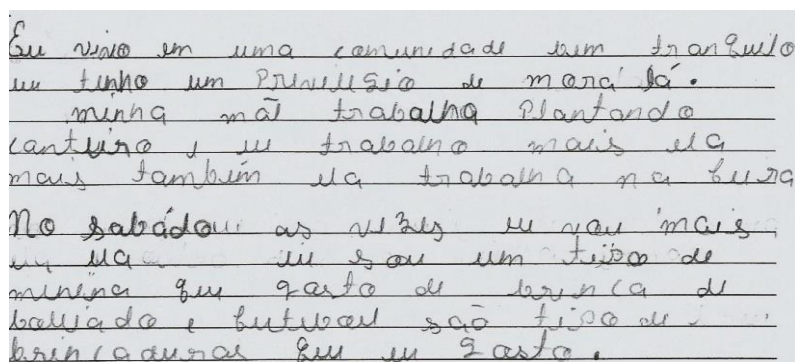 Eu vivo em uma comunidade bem tranquilo
eu tenho um Privilegio de morá lá.
minha mãe trabalha Plantando
canteiro e eu trabalho mais ela
mais também ela trabalha na feira
No sabádou as vezes eu vou mais
ela eu sou um tipo de
menina que gosto de brinca de
baliado e futibou são tipo de
brincaduras que eu gosto.